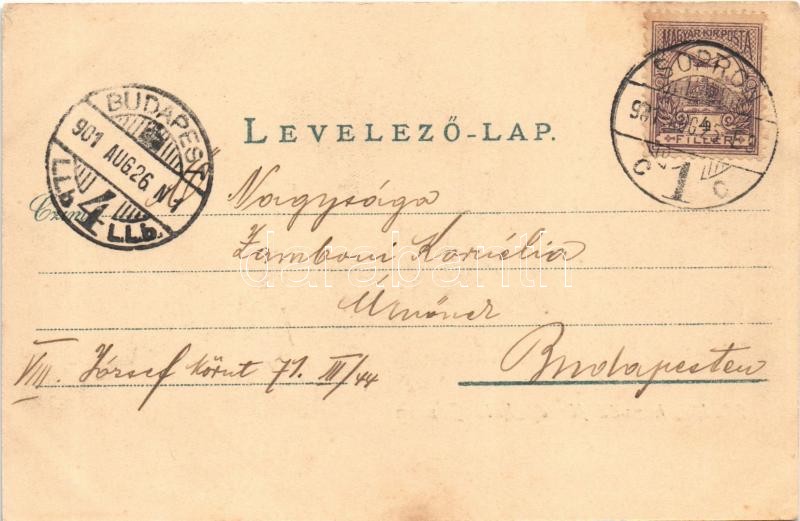 MAGYAR KIR. POSTA
4
FILLÉR
SOPRON
1
C C
BUDAPEST
901 AUG 26 N1
4
L.L.b. L.L.b.
LEVELEZŐ-LAP.
Czim
Nagysága
Zamboni Kornélia
Úrnőnek
Budapesten
VIII. József körut 71. III/44
darabanth